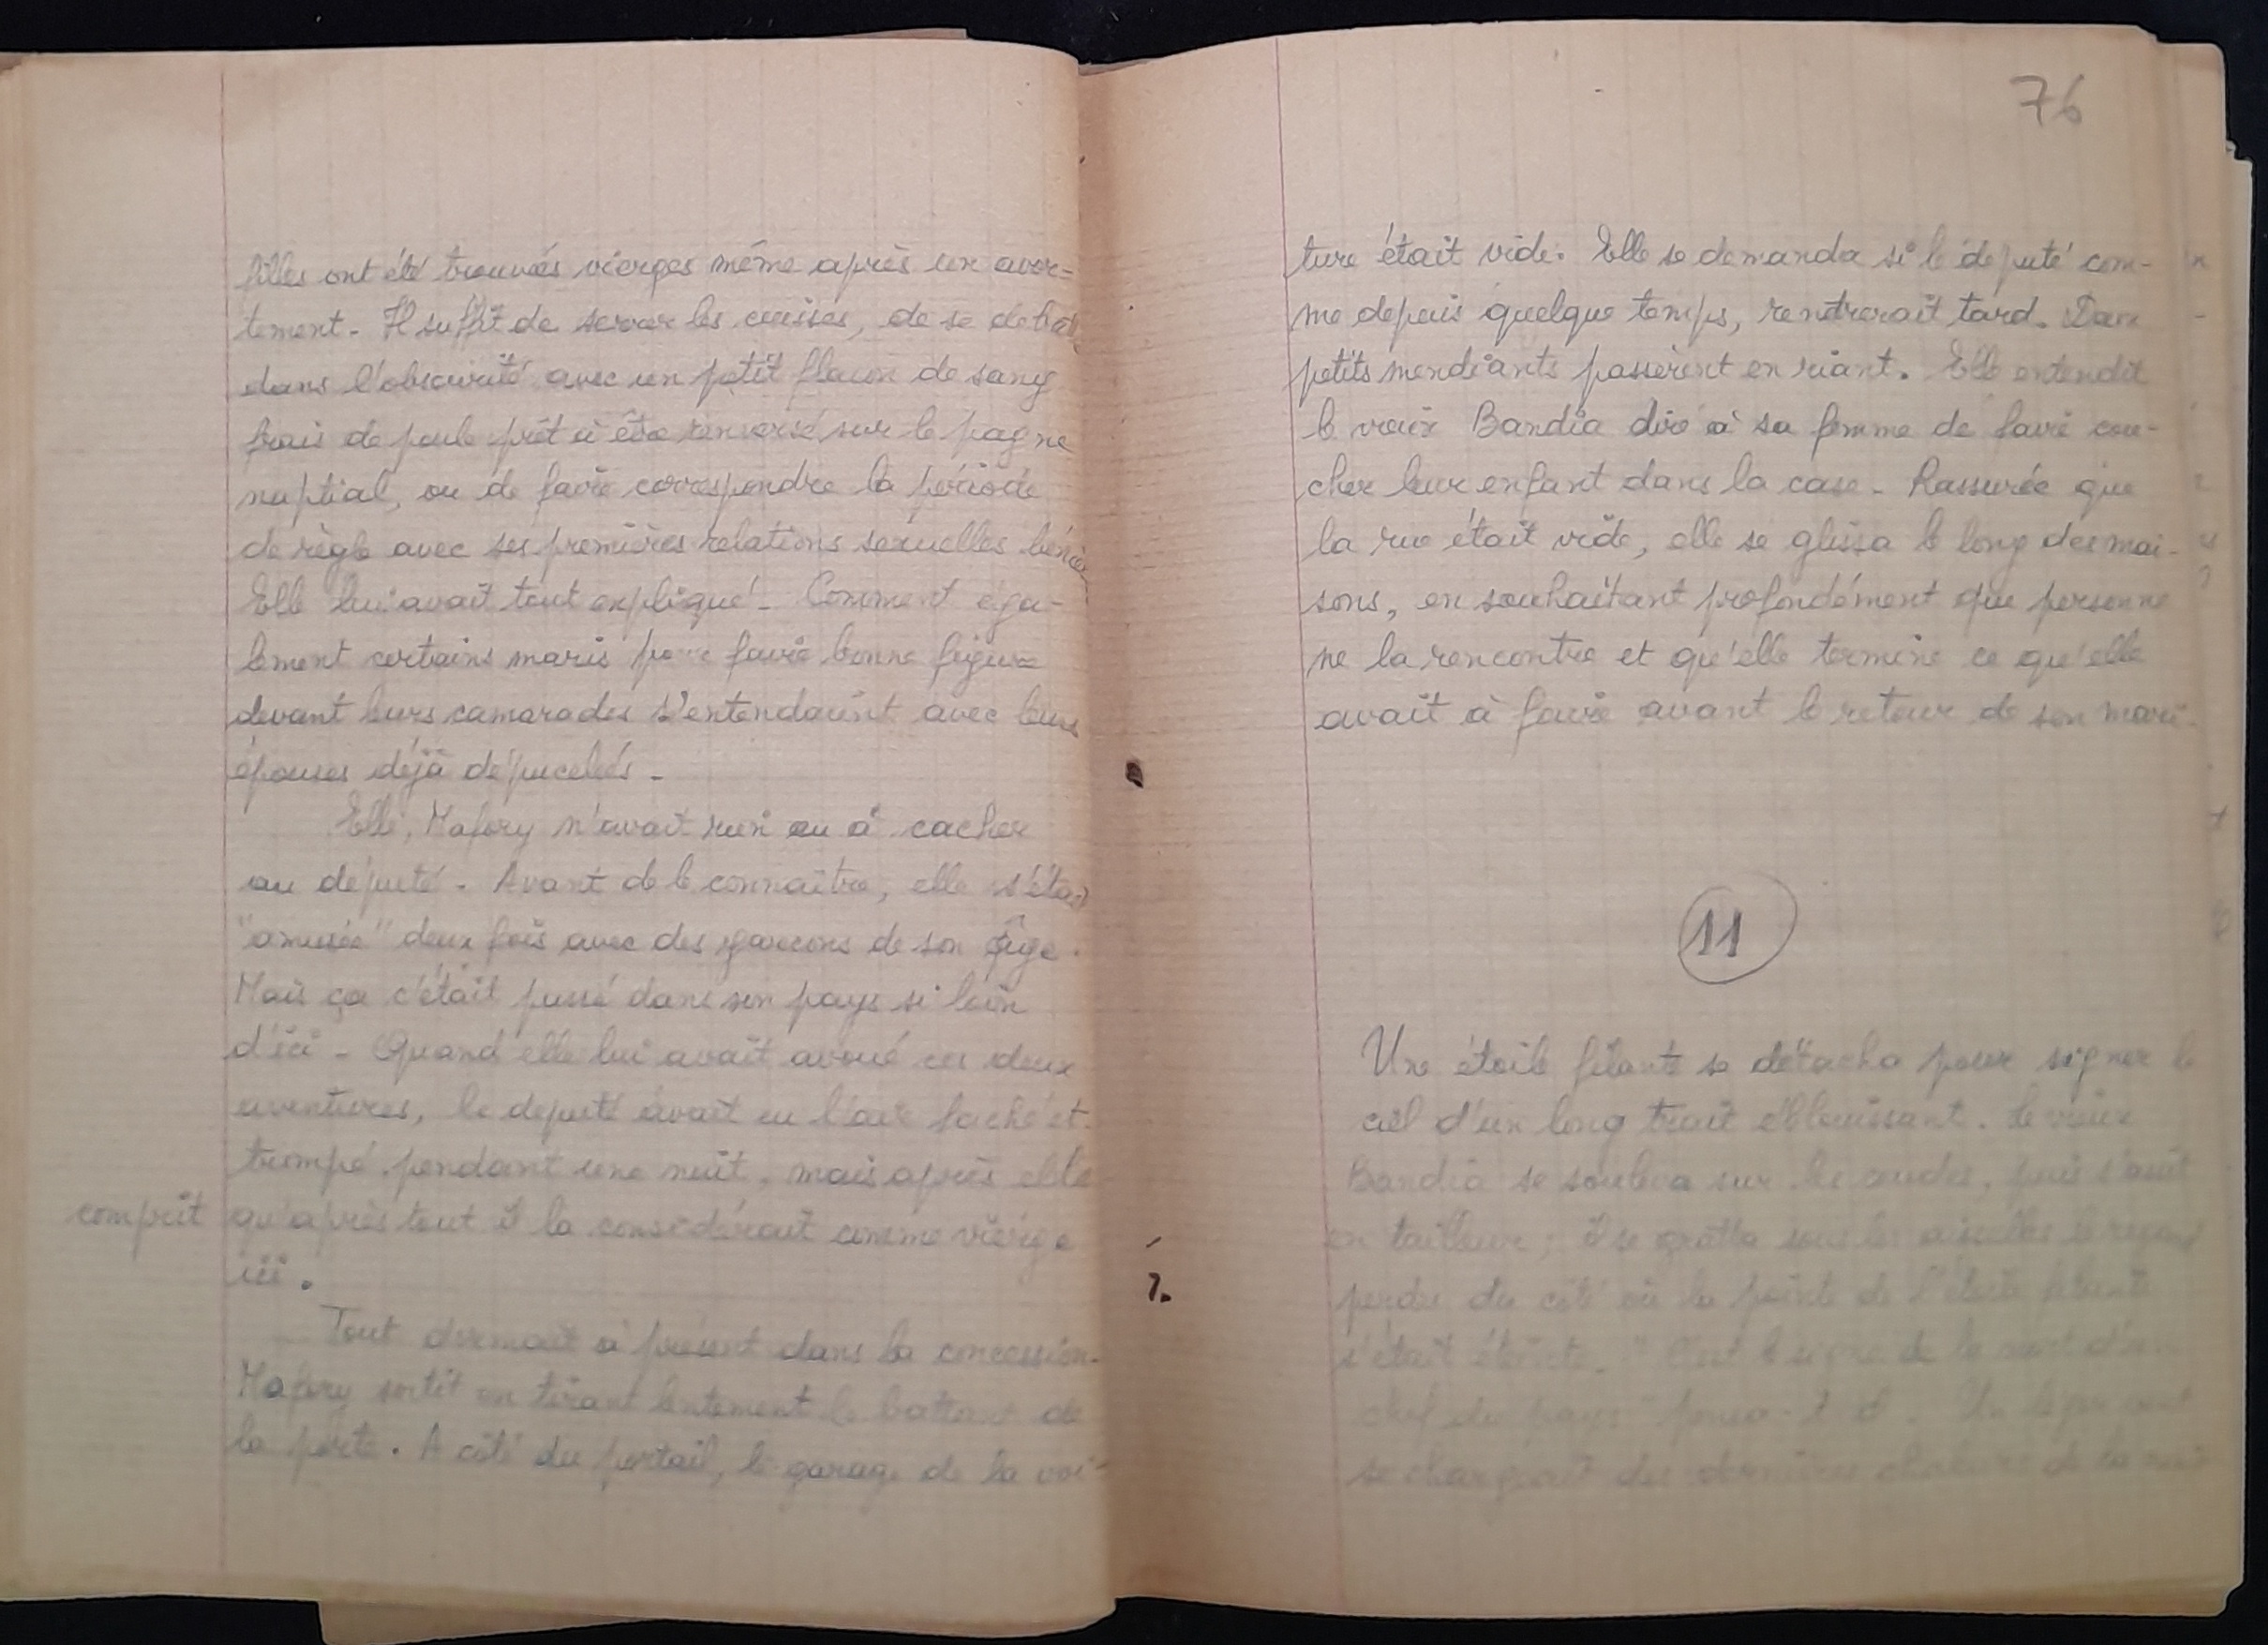 filles ont été trouvées vierges même après un avor-
tement. Il suffit de serrer les cuisses, de se débat
dans l'obscurité avec un petit flacon de sang
frais de poule prêt à être renversé sur le pagne
nuptial, ou de faire correspondre la période
de règle avec ses premières relations sexuelles
Elle lui avait tout expliqué. Comment éga-
lement certains maris pour faire bonne figure
devant leurs camarades s'entendaient avec leurs
épouses déjà dépucelées.
Elle, Mafory n'avait rien eu à cacher
au député. Avant de le connaître, elle s'était
"amusée" deux fois avec des garçons de son âge.
Mais ça c'était passé dans son pays si loin
d'ici. Quand elle lui avait avoué ces deux
aventures, le député avait eu l'air faché et
trompé pendant une nuit, mais après elle
comprit qu'après tout il la considérait comme vierge
ici.
Tout dormait à présent dans la concession.
Mafory sortit en tirant lentement le battant de
la porte. A côté du portail, le garage de la voi-
76
ture était vide. Elle se demanda si le député com-
me depuis quelque temps, rentrerait tard. Deux
petits mendiants passèrent en riant. Elle entendit
le vieux Bandia dire à sa femme de faire cou-
cher leur enfant dans la case. Rassurée que
la rue était vide, elle se glissa le long des mai-
sons, en souhaitant profondément que personne
ne la rencontre et qu'elle termine ce qu'elle
avait à faire avant le retour de son mari.
11
Une étoile filante se détacha pour signer le
ciel d'un long trait éblouissant. Le vieux
Bandia se souleva sur les coudes, puis s'assit
en tailleur; il se gratta sous les aisselles le regard
perdu du côté où la pointe de l'étoile filante
s'était éteinte. "C'est le signe de la mort d'un
chef du pays" pensa-t-il. Un léger vent
se chargeait des dernières chaleurs de la nuit